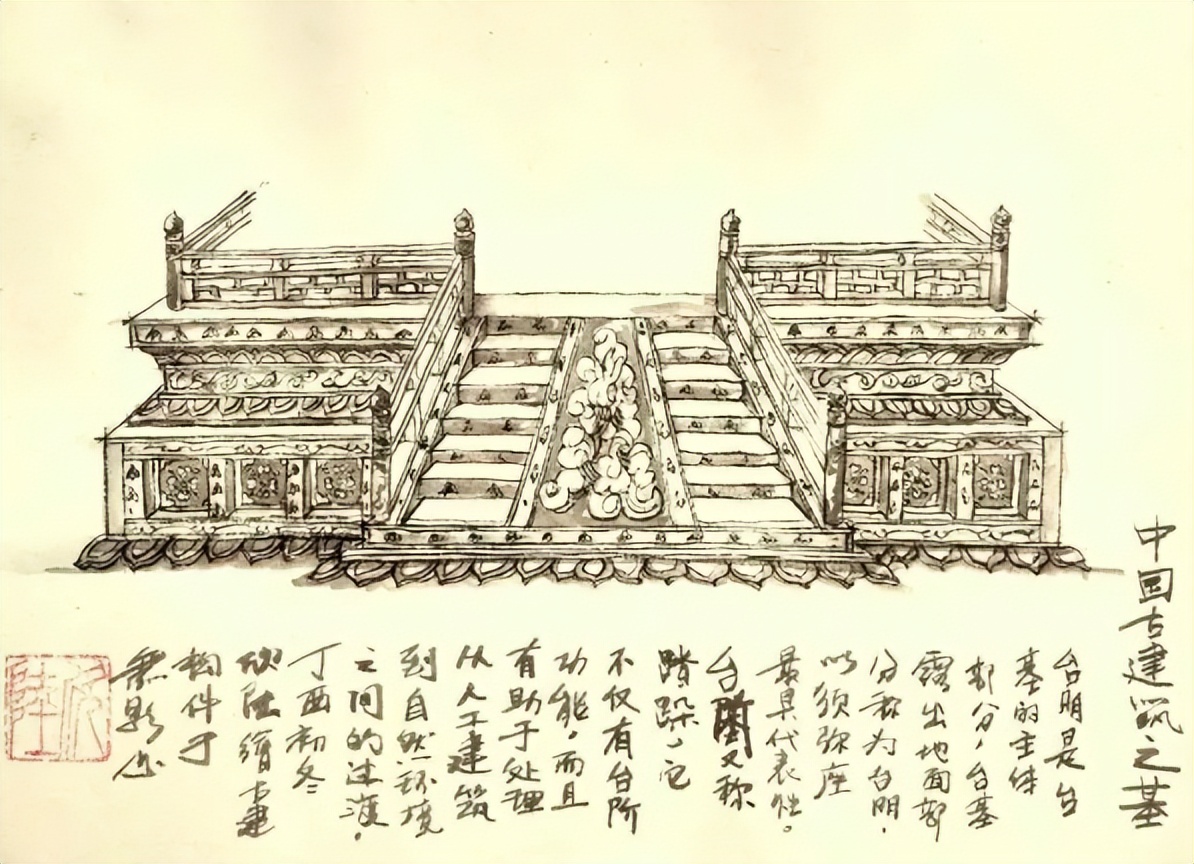 中国古建筑之基
台明是台
基的主体
部分,台基
露出地面部
分称为台明,
以须弥座
最具代表性。
台阶又称
踏跺,它
不仅有台阶
功能,而且
有助于处理
从人工建筑
到自然环境
之间的过渡,
丁酉初冬
欣陆绘古建
构件于
無影山